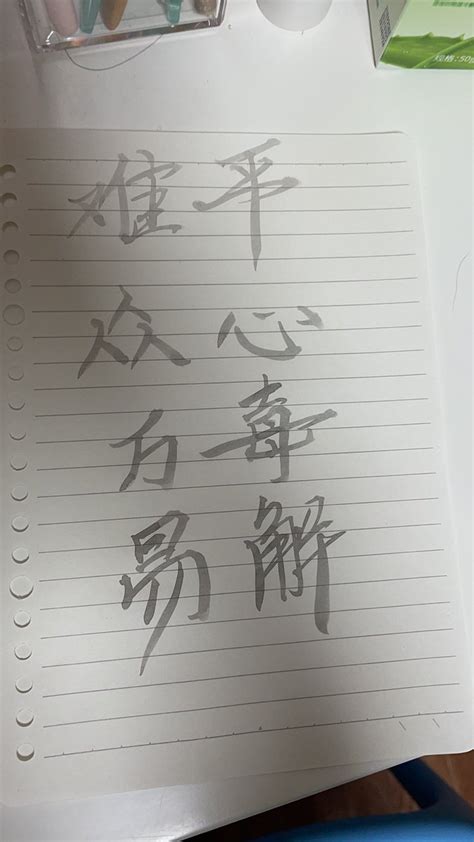 规格:50g
难平
众心
万毒
易解